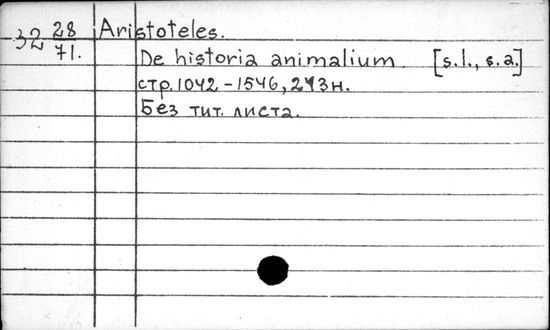 32 28/71. Aristoteles.
De historia animalium [s.l., s.a.]
стр. 1042-1546, 243н.
Без тит. листа.